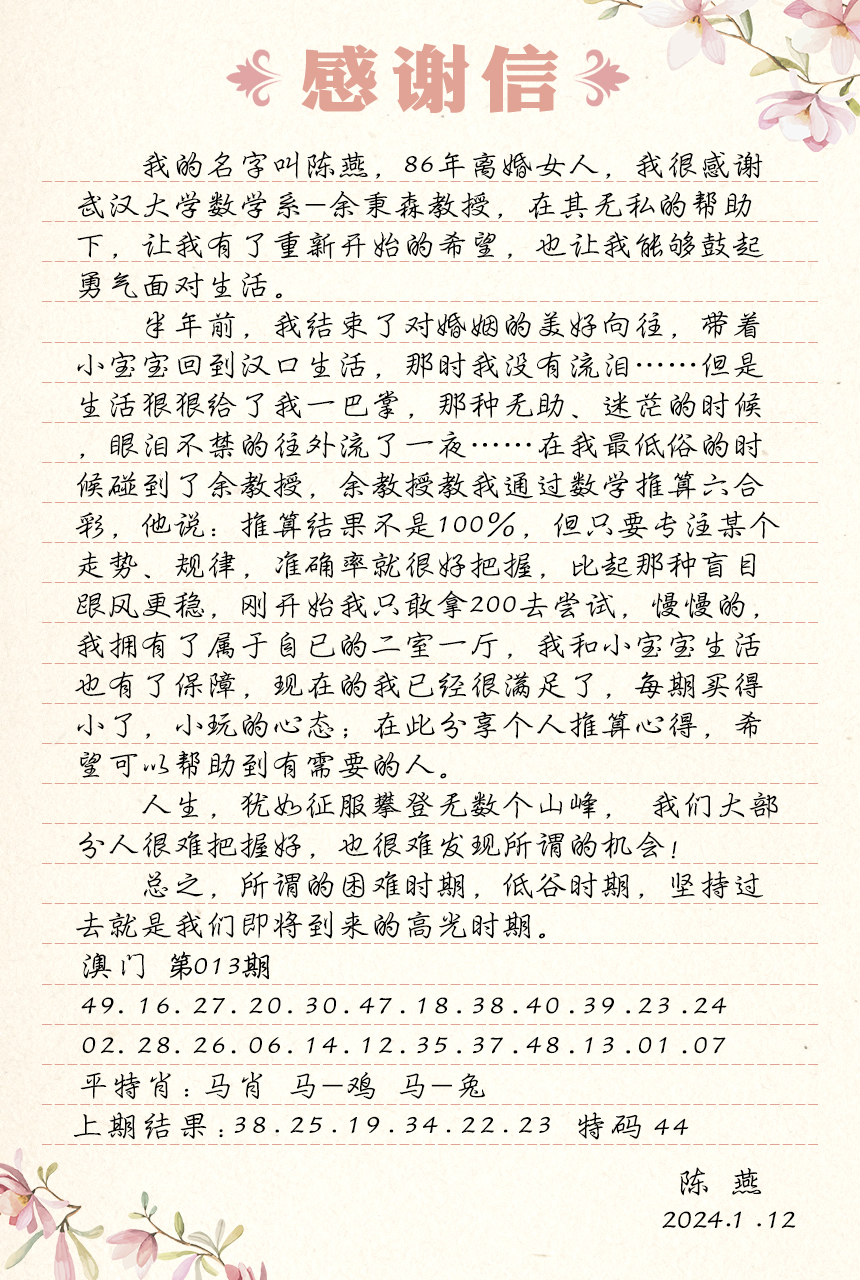 感谢信
我的名字叫陈燕，86年离婚女人，我很感谢
武汉大学数学系—余秉森教授，在其无私的帮助
下，让我有了重新开始的希望，也让我能够鼓起
勇气面对生活。
半年前，我结束了对婚姻的美好向往，带着
小宝宝回到汉口生活，那时我没有流泪……但是
生活狠狠给了我一巴掌，那种无助、迷茫的时候
，眼泪不禁的往外流了一夜……在我最低俗的时
候碰到了余教授，余教授教我通过数学推算六合
彩，他说：推算结果不是100%，但只要专注某个
走势、规律，准确率就很好把握，比起那种盲目
跟风更稳，刚开始我只敢拿200去尝试，慢慢的，
我拥有了属于自已的二室一厅，我和小宝宝生活
也有了保障，现在的我已经很满足了，每期买得
小了，小玩的心态；在此分享个人推算心得，希
望可以帮助到有需要的人。
人生，犹如征服攀登无数个山峰， 我们大部
分人很难把握好，也很难发现所谓的机会！
总之，所谓的困难时期，低谷时期，坚持过
去就是我们即将到来的高光时期。
澳门 第013期
49.16.27.20.30.47.18.38.40.39.23.24
02.28.26.06.14.12.35.37.48.13.01.07
平特肖：马肖 马—鸡 马—兔
上期结果：38.25.19.34.22.23 特码 44
陈 燕
2024.1.12